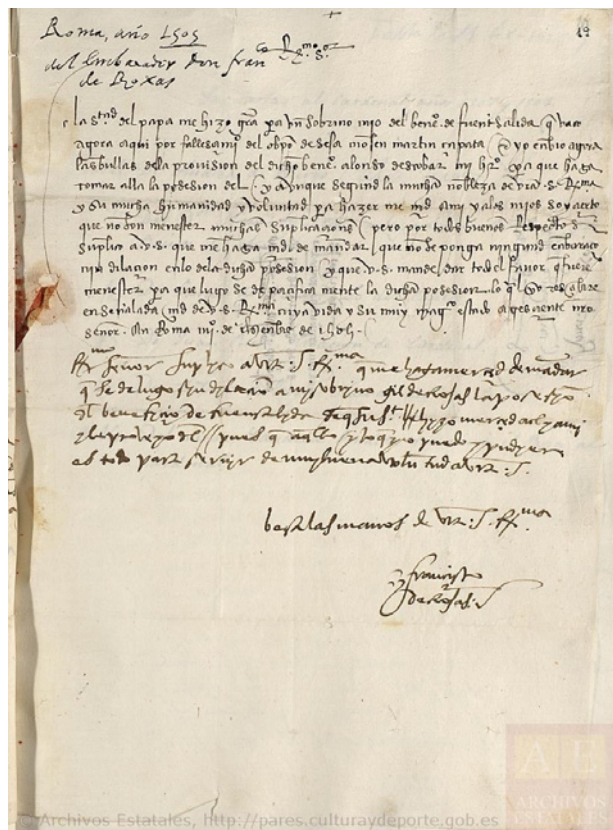 +
19
Roma, año 1505
del Embaxador Don Franco Rmo Sor
de Roxas
la Std del papa me hizo grã pa un sobrino mio del benefo de fuentsalida q vaco
agora aqui por fallesçamio del obpo de sesa mosen martin çapata yo enbio agora
las bullas dela provision del dicho benefo alonso descobar mi hro pa que haga
tomar alla la posesion del y aunque segund la mucha nobleza de vra s. Rma
y su mucha humanidad y voluntad pa hazer me md a mi y alos mios soy çierto
que no son menester muchas suplicaçiones pero por todos buenos Respectos
suplico a v. s. que me haga md de mandar que no se ponga ningund enbaraço
ni dilaçion enlo dela dicha posesion y que v. s. mande dar todo el favor q fuere
menester pa que luego se de paçifica mente la dicha posesion lo ql yo resçebire
en señalada md de v. s. Rma cuya vida y su muy magco estado acresçiente nro
señor. En Roma de dizienbre de 1505
Rmo Señor suplico a vra .S. Rma que me haga merçed de mandar
q se de luego syn dylaçion a my sobryno gil de Rojas la posesyon
del benefiçio de fuensalyda
pues q
es todo para servyr de muy buena volutad a vra .S.
besa las manos de vra .S. Rma
Françisco
de Rojas
Archivos Estatales, http://pares.culturaydeporte.gob.es
AE
ARCHIVOS
ESTATALES